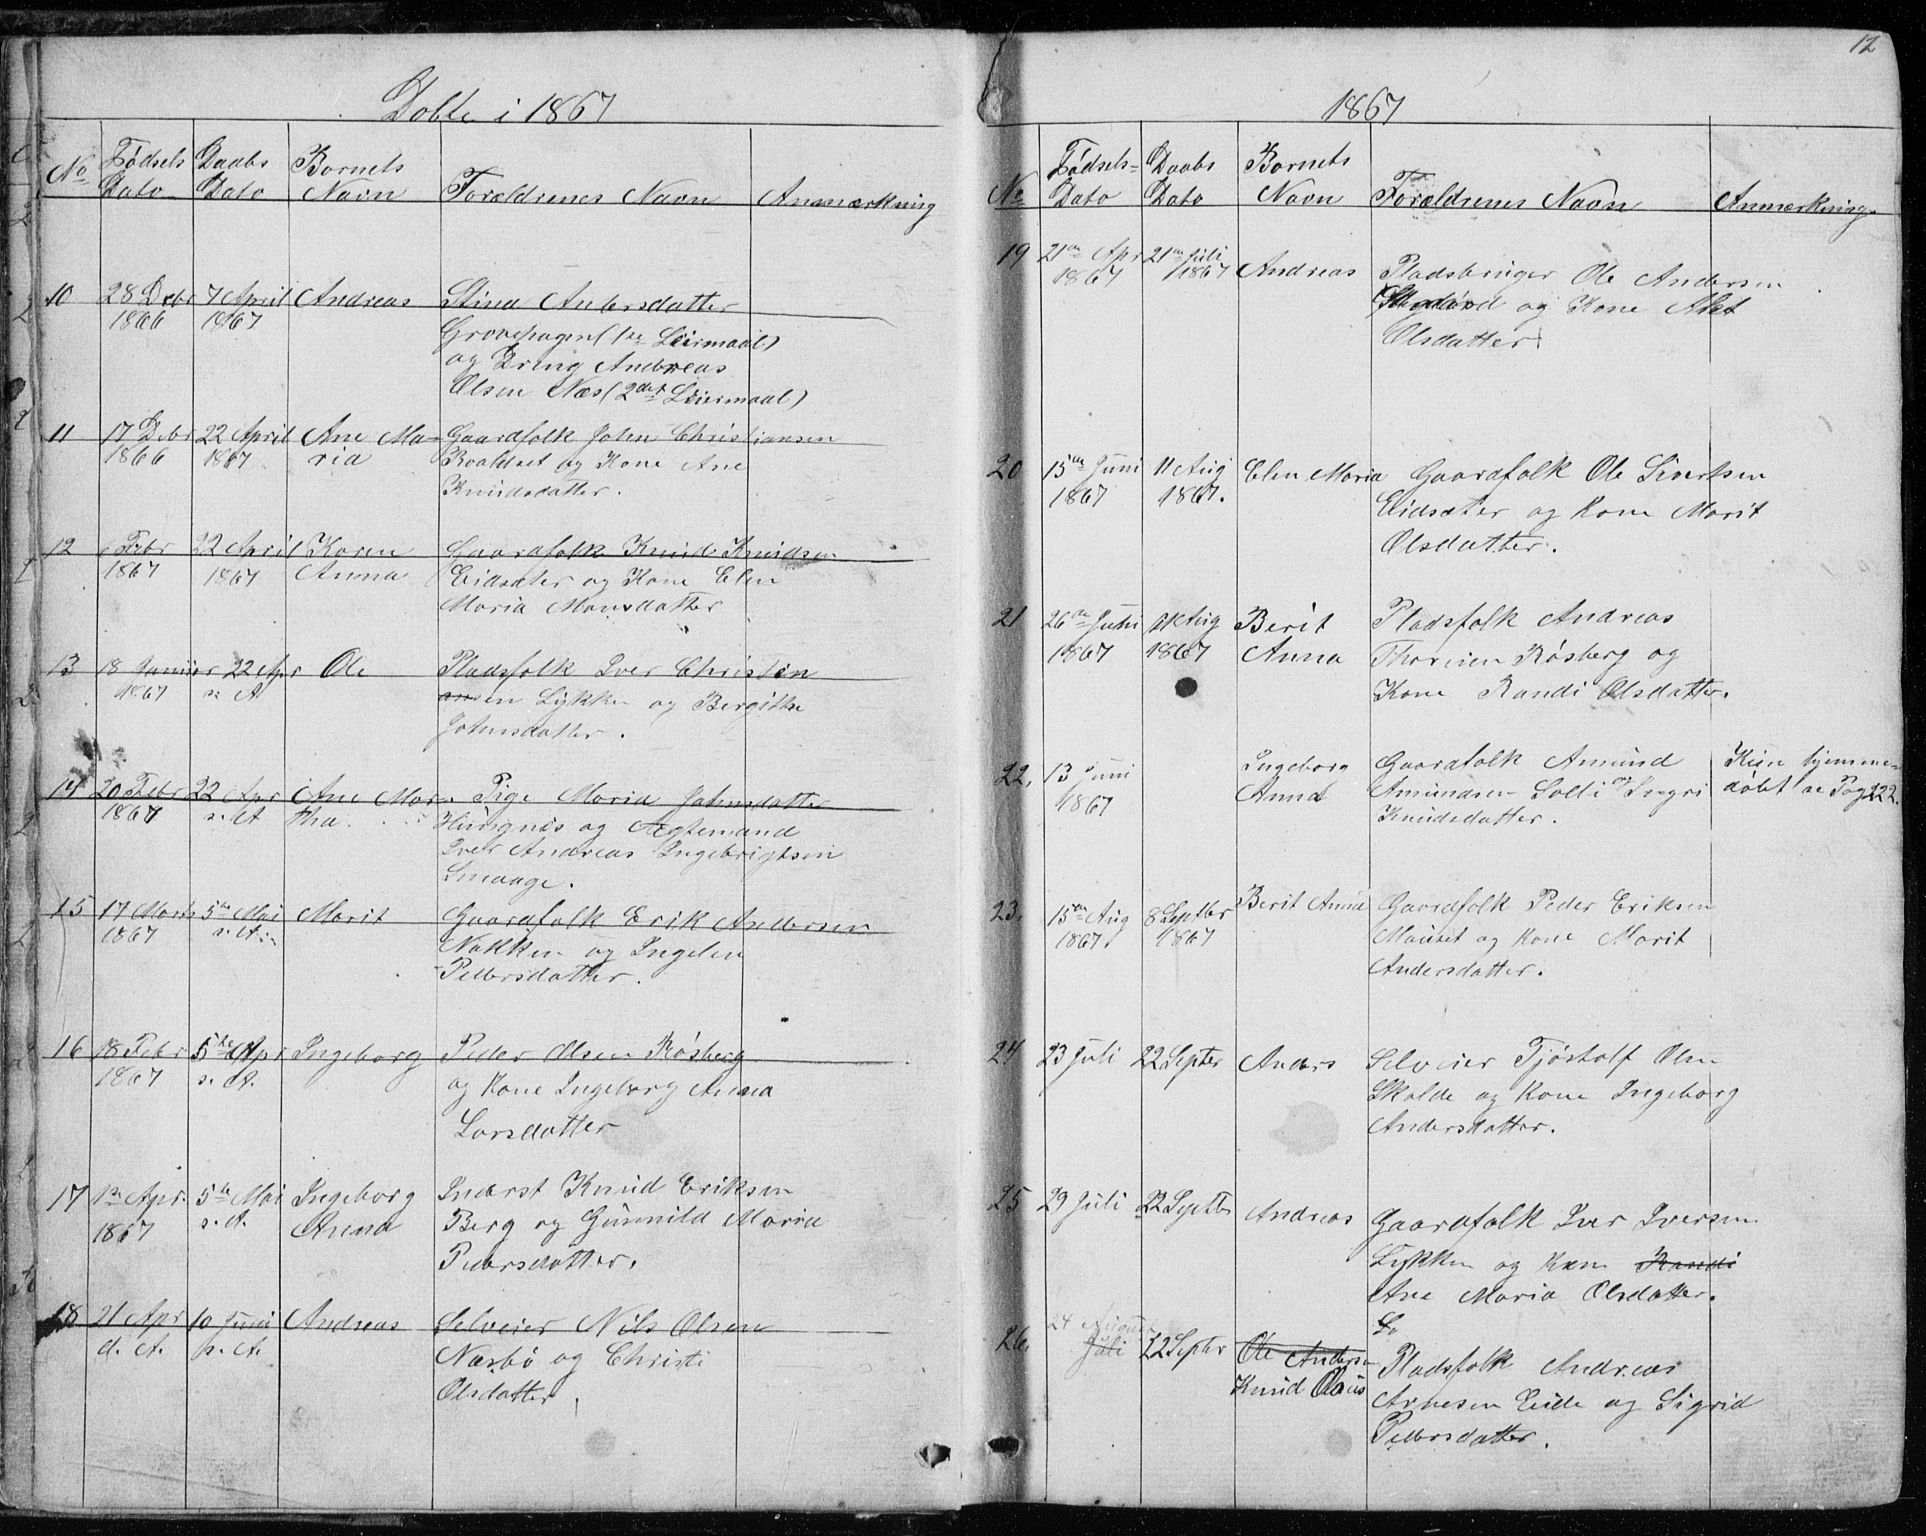 Døbte i 1867
No
Fødsels Dato
Daabs Dato
Barnets Navn
Forældrenes Navn
Anmærkning
10 28 Debr 7 April Andreas Stina Andersdatter
1866 1867
Grovehagen (1ste Leiermaal)
og Dreng Andreas
Olsen Næs (2det Leiermaal)
11 17 Debr 22 April Ane Ma- Gaardfolk John Christiansen
1866 1867 ria Roaldset og Kone Ane
Knudsdatter.
12 Febr 22 April Karen Gaardfolk Knud Knudsen
1867 1867 Anna Eidsæter og Kone Elen
Maria Monsdatter
13 18 Januar 22 Apr Ole Pladsfolk Iver Christen
1867 s. A sen Lykken og Bergithe
Johnsdatter.
14 20 Febr 22 Apr Ane Mar- Pige Maria Johnsdatter
1867 s. A tha. og Ægtemand
Iver Andreas Ingebrigtsen
Smaage.
15 17 Marts 5te Mai Marit Gaardfolk Erik Andersen
1867 s. A. Nakken og Ingelen
Pedersdatter.
16 18 Febr 5te Apr Ingeborg Peder Olsen Røsberg
1867 s. A. og Kone Ingeborg Anna
Larsdatter
17 1ste Apr. 5te Mai Ingeborg Inderst Knud Eriksen
1867 s. A. Anna Berg og Gunnild Maria
Pedersdatter.
18 21 Apr 10 Juni Andreas Selveier Nils Olsen
d. A. s. A. Næsbø og Christi
Olsdatter.
12
1867
No
Fødsels- Dato
Daabs Dato
Barnets Navn
Forældrenes Navn
Anmærkning.
19 21de Apr 21de Juli Andreas Pladsbruger Ole Andersen
1867 1867
og Kone
Olsdatter.
20 15de Juni 11 Aug Elen Maria Gaardfolk Ole Sivertsen
1867 1867. Eidsæter og Kone Marit
Olsdatter.
21 26de Juni Aug Berit Pladsfolk Andreas
1867 1867 Anna Røsberg og
Kone Randi Olsdatter.
22. 13 Juni Ingeborg Gaardfolk Amund Kun hjemme-
1867 Anna Amundsen Solli og Ingri døbt se Pag 222.
Knudsdatter.
23. 15de Aug 8 Septbr Berit Anna Gaardfolk Peder Eriksen
1867 1867 Mauset og Kone Marit
Andersdatter.
24 23 Juli 22 Septbr Anders Selveier Tjøstolf Olsen
Skalde og Kone Ingeborg
Andersdatter.
25 29 Juli 22 Septbr Andreas Gaardfolk Iver Iversen
Lykken og Kone Randi
Ane Maria Olsdatter.
24 August
26. Juli 22 Septbr Ole Andersen Pladsfolk Andreas
Knud Olaus Arnesen Eide og Sigrid
Pedersdatter.